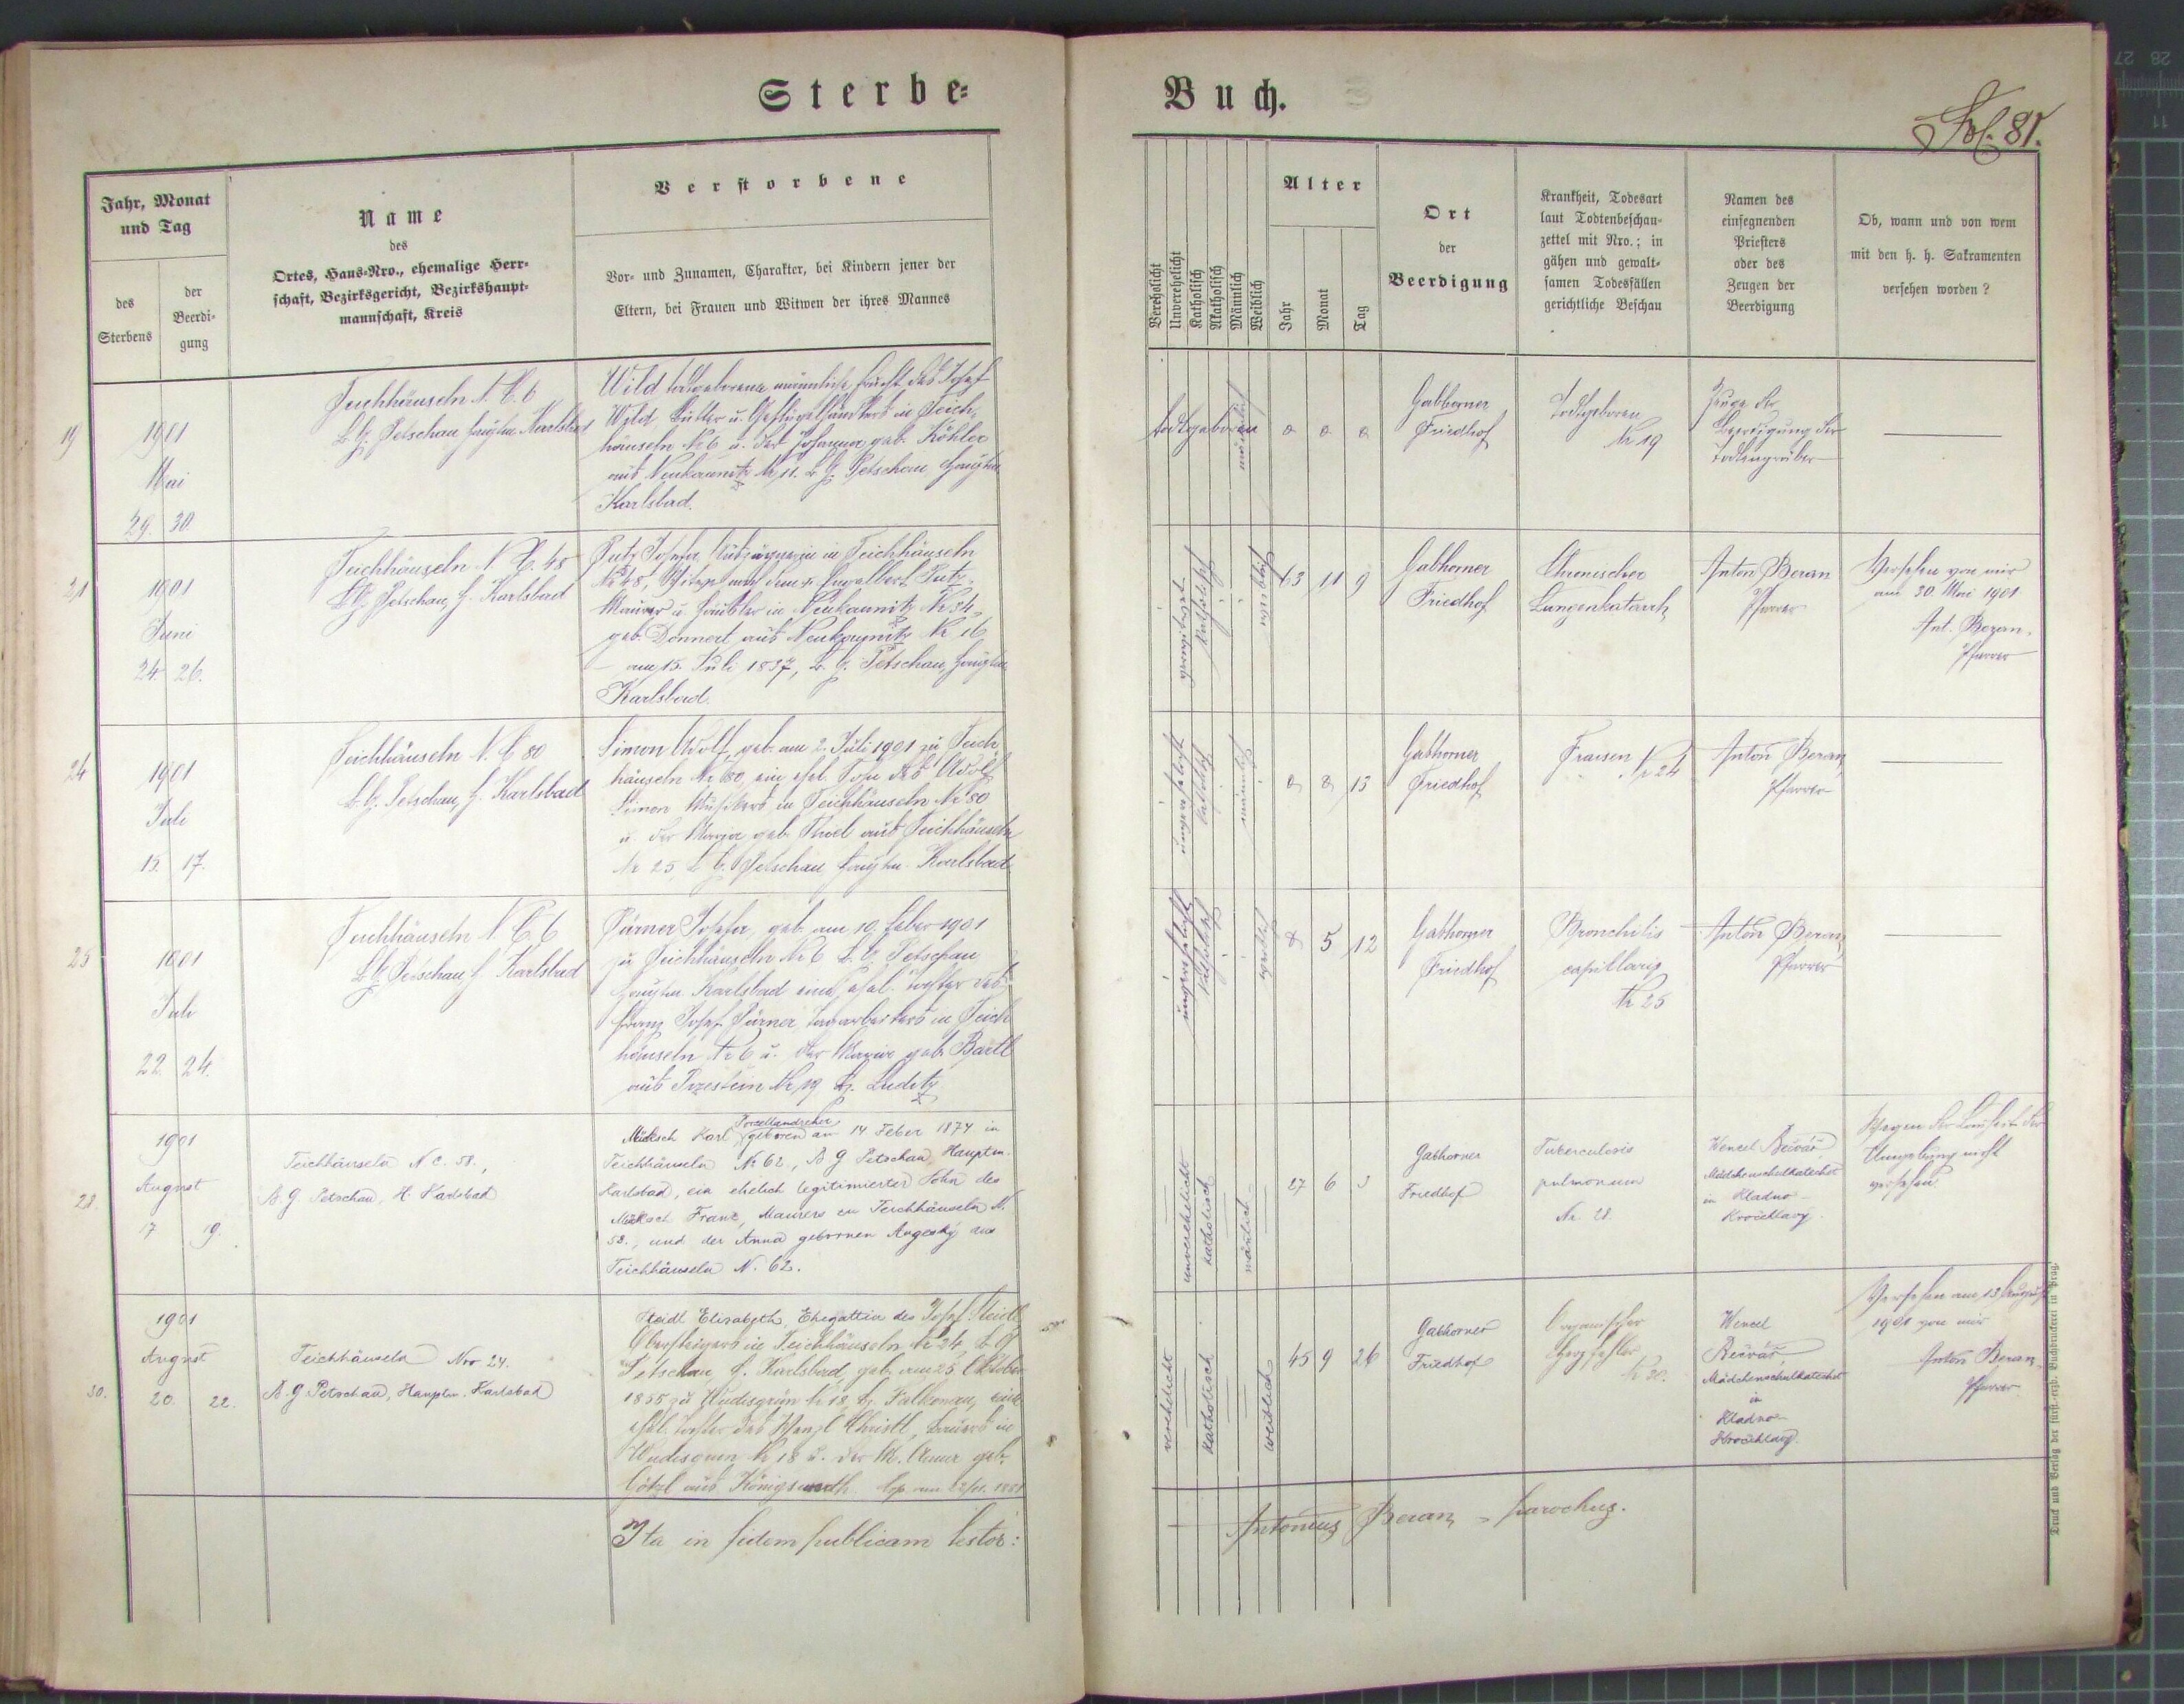 Sterbe=
Buch.
Fol. 81.
Jahr, Monat
und Tag
des
Sterbens
der
Beerdi=
gung
Name
des
Ortes, Haus=Nro., ehemalige Herr=
schaft, Bezirksgericht, Bezirkshaupt=
mannschaft, Kreis
Verstorbene
Vor= und Zunamen, Charakter, bei Kindern jener der
Eltern, bei Frauen und Witwen der ihres Mannes
Verehelicht
Unverehelicht
Katholisch
Akatholisch
Männlich
Weiblich
Alter
Jahr
Monat
Tag
Ort
der
Beerdigung
Krankheit, Todesart
laut Todtenbeschau=
zettel mit Nro.; in
gähen und gewalt=
samen Todesfällen
gerichtliche Beschau
Namen des
einsegnenden
Priesters
oder des
Zeugen der
Beerdigung
Ob, wann und von wem
mit den h. h. Sakramenten
versehen worden?
19
1901
Mai
29. 30
Teichhäuseln N. C. 6
B. G. Petschau Hauptm. Karlsbad
Wild todtgeborene männliche Frucht des Josef
Wild Butter u. Geflügelhändlers in Teich=
häuseln Nr 6 u. der Johanna geb. Köhler
aus Neukaunitz Nr 11. B. G. Petschau Hauptm
Karlsbad.
todtgeboren
männlich
0 0 0
Gabhorner
Friedhof
Todtgeboren
Nr 19
Zeuge der
Beerdigung der
Todtengräber
21
1901
Juni
24. 26.
Teichhäuseln N. C. 48
B. G. Petschau, H. Karlsbad
Putz Josefa, Auszüglerin in Teichhäuseln
Nr 48, Witwe nach dem † Engelbert Putz,
Maurer u. Häusler in Neukaunitz Nr 34,
geb. Donnert aus Neukaunitz Nr 16
am 15. Juli 1837, B. G. Petschau, Hauptm
Karlsbad.
verwitwet
katholisch
weiblich
63 11 9
Gabhorner
Friedhof
Chronischer
Lungenkatarrh
Anton Beran
Pfarrer
Versehen von mir
am 30. Mai 1901
Ant. Beran,
Pfarrer
24
1901
Juli
15. 17.
Teichhäuseln N. C. 80
B. G. Petschau, H. Karlsbad
Simon Adolf, geb. am 2. Juli 1901 zu Teich
häuseln Nr 80, ein ehel. Sohn des Adolf
Simon Musikers in Teichhäuseln Nr 80
u. der Maria geb. Thiel aus Teichhäuseln
Nr 25, B. G. Petschau Hauptm. Karlsbad
unverehelicht
katholisch
männlich
0 0 13
Gabhorner
Friedhof
Fraisen
Nr 24
Anton Beran,
Pfarrer
25
1901
Juli
22. 24.
Teichhäuseln N. C. 6
B. G. Petschau H. Karlsbad
Pürner Josefa, geb. am 10. Feber 1901
zu Teichhäuseln Nr 6 B. G. Petschau
Hauptm Karlsbad eine ehel. Tochter des
Franz Josef Pürner Tagarbeiters in Teich
häuseln Nr 6 u. der Maria geb. Bartl
aus Nr 19 Bz. Luditz
unverehelicht
katholisch
weiblich
0 5 12
Gabhorner
Friedhof
Bronchitis
capillaris
Nr 25
Anton Beran,
Pfarrer
28.
1901
August
17 19.
Teichhäuseln N. C. 58.,
B. G. Petschau, H. Karlsbad
Porzellandreher
Mücksch Karl geboren am 14 Feber 1874 in
Teichhäuseln Nr 62, B G Petschau, Hauptm.
Karlsbad, ein ehelich legitimierter Sohn des
Mücksch Franz, Maurers in Teichhäuseln N.
58., und der Anna gebornen aus
Teichhäuseln N. 62.
unverehelicht
katholisch
mänlich
27 6 3
Gabhorner
Friedhof
Tuberculosis
pulmonum
Nr. 28.
Wencel Bečvář
Mädchenschulkatechet
in Kladno-
Kročehlavy.
Wegen der der
Umgebung nicht
versehen.
30.
1901
August
20. 22.
Teichhäuseln Nro 24.
B. G Petschau, Hauptm. Karlsbad
Steidl Elisabeth, Ehegattin des Josef Steidl
Obersteigers in Teichhäuseln Nr 24, B. G.
Petschau, H. Karlsbad, geb. am 25. Oktober
1855 zu Wudisgrün Nr 18, Bz. Falkenau, eine
ehel. Tochter des Wenzl Christl, Bauers in
Wudisgrün Nr 18 u. der M. Anna geb.
Götzl aus Königswerth.
verehelicht
katholisch
weiblich
45 9 26
Gabhorner
Friedhof
Organischer
Herzfehler
Nr 30.
Wencel
Bečvář,
Mädchenschulkatechet
in
Kladno-
Kročehlavy.
Versehen am 13 August
1901 von mir
Anton Beran,
Pfarrer.
Ita in fidem publicam testor:
Antonius Beran, parochus.
Druck und Verlag der fürst.=erzb. Buchdruckerei in Prag.